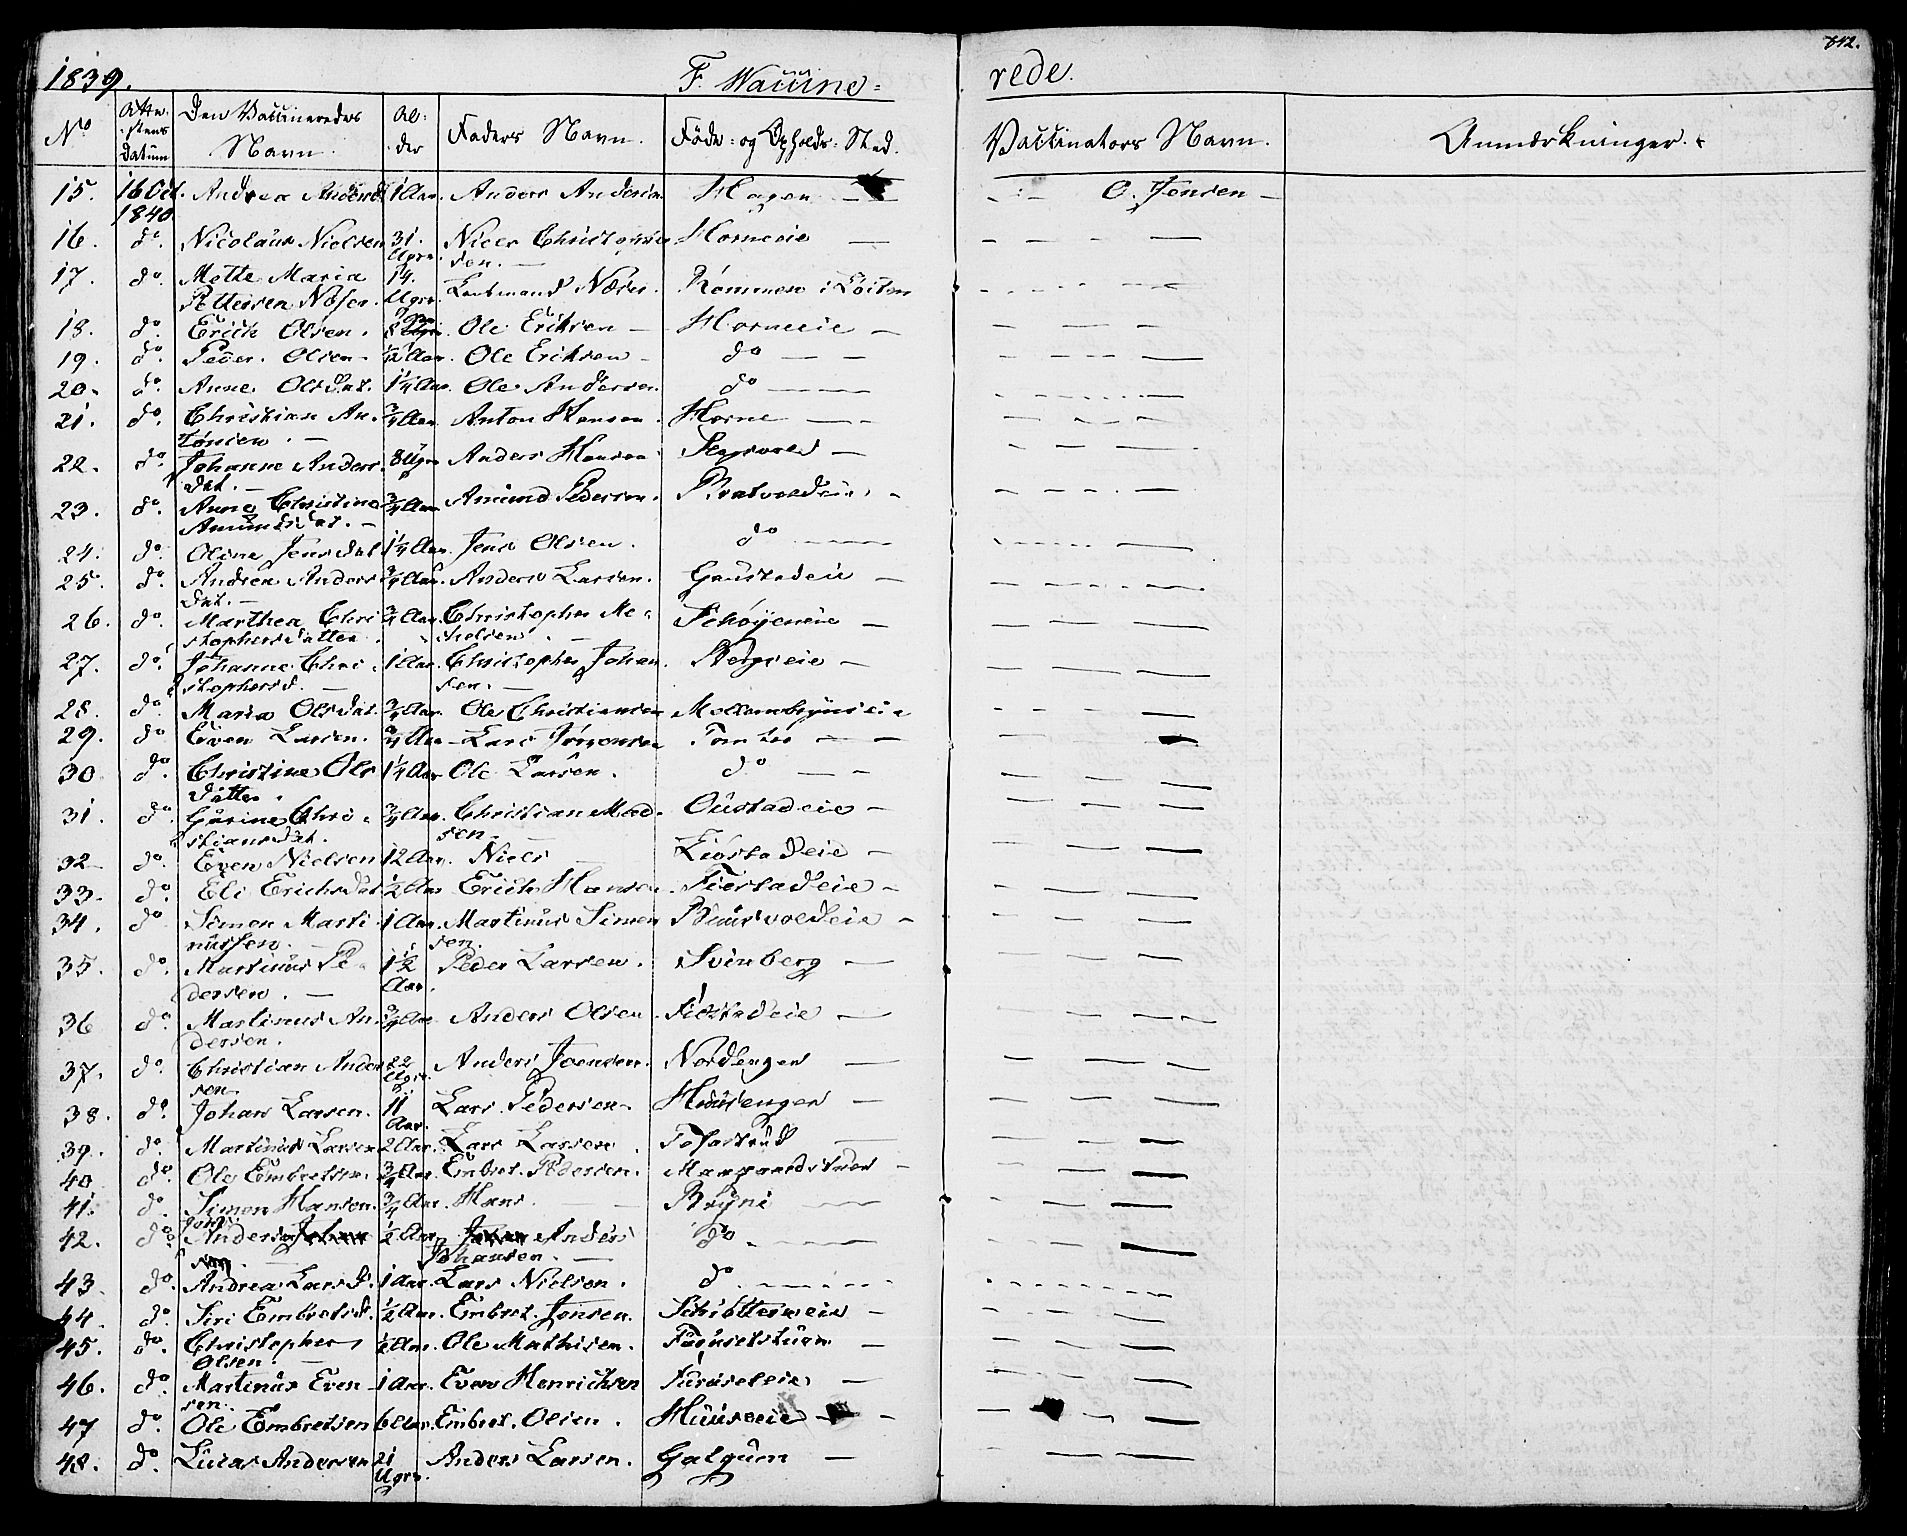 1839. F. Vaccine= rede. 842.
No Atte-stens Datum Den Vaccineredes Navn. Al-der Faders Navn. Føde- og Opholds-Sted. Vaccinators Navn. Anmærkninger.
15. 16 Oct. 1840 Andrea Andersd 1 Aar. Anders Andersen Hagen — O. Jensen —
16. do. Nicolaus Nielsen 31. Ugr. Niels Christophersen. — Horneeie —
17. do. Mette Maria Pettersen Næser. 14. Ugr. Leutnand Næser. Rømmen i Løiten
18. do. Erich Olsen. 8 Ole Eriksen — Horneeie —
19. do. Peder Olsen — ½ Aar. Ole Eriksen — do — —
20. do. Anne Olsdat. 1¼ Aar. Ole Andersen. do — —
21. do. Christian An-tonsen. — ¾ Aar Anton Hansen. Horne —
22. do. Johanne Anders-dat. — 8 Ugr. Anders Hansen
23. do. Anne Christine Amundsdat. — ¾ Aar Amund Pedersen.
24. do. Oline Jensdat 1¼ Aar. Jens Olsen. do —
25. do. Andrea Anders dat. — ¾ Aar. Anders Larsen. Gaustadeie —
26. do. Marthea Chri stophersdatter. ¾ Aar. Christopher Me-helsen. — Schøyeneie —
27. do. Johanne Chri-stophersd. — 1 Aar. Christopher Johan sen. — Bergseie —
28. do. Maria Olsdat. ¾ Aar. Ole Christiansen Mellembyuseie
29. do Even Larsen. ¾ Aar Lars Jørgensen Tomter — —
30 do. Christine Ols datter. 1¼ Aar Ole Larsen. do. — —
31. do. Gurine Chri-stiansdat. ¾ Aar. Christian Mad-sen. — Oustadeie —
32 do. Even Nielsen 12 Aar. Niels — Fiestadeie —
33. do. Eli Erichsdat ½ Aar Erich Hansen. Fiestadeie —
34. do Simon Marti nussen. — 1 Aar. Martinus Simen sen. —
35. do. Martinus Pe-dersen. — 1½ Aar. Peder Larsen. Svenberg —
36 do. Martinus An dersen. ¾ Aar Anders Olsen. Fiestadeie —
37. do. Christian Ander sen. 22 Ugr. Anders Joensen. Nordlengen —
38. do. Johan Larsen. 11 Aar. Lars Pedersen — Huusengen —
39. do. Martinus Larsen 2 Aar. Lars Larsen. Tofastrud —
40 do. Ole Embretsen. ¾ Aar. Embret Pedersen.
41. do. Simon Hansen. ¾ Aar. Hans — Bryni —
42. do. Anders Johan ½ Aar. Anders Johansen. — do —
43. do. Andrea Larsd. 1 Aar. Lars Nielsen. do. —
44. do. Siri Embretsd. ½ Aar. Embret Jensen. Schiøtterneie —
45. do. Christopher Olsen. — ½ Aar. Ole Mathisen. Furusetstuen —
46. do. Martinus Even-sen. 1 Aar. Even Henrichsen Furuseteie —
47 do. Ole Embretsen 6 Aar. Embret Olsen. Huuseeie —
48. do. Lucas Andersen 21 Ugr. Anders Larsen. Galgum —